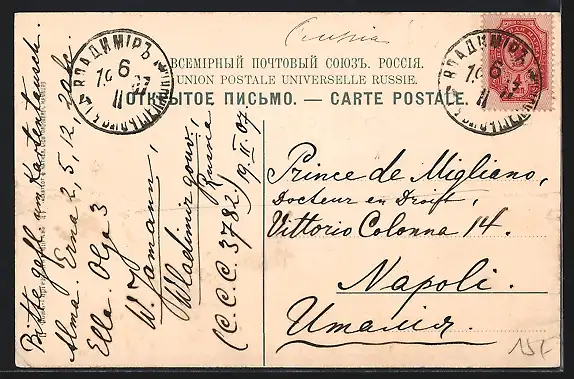 Russia
ВСЕМІРНЫЙ ПОЧТОВЫЙ СОЮЗЪ. РОССІЯ.
UNION POSTALE UNIVERSELLE RUSSIE.
ОТКРЫТОЕ ПИСЬМО. — CARTE POSTALE.
ВЛАДИМІРЪ
6
II
ВЛАДИМІРЪ
6
II
Bitte gefl. um Kartentausch.
Alma. Erna 2, 5, 12
Elle. Olga 3
W. Jamann,
Wladimir gouv.,
Russie
(C.C.C. 3782.) 19 6/II 07
Prince de Migliano,
Docteur en Droit,
Vittorio Colonna 14.
Napoli.
Италія.